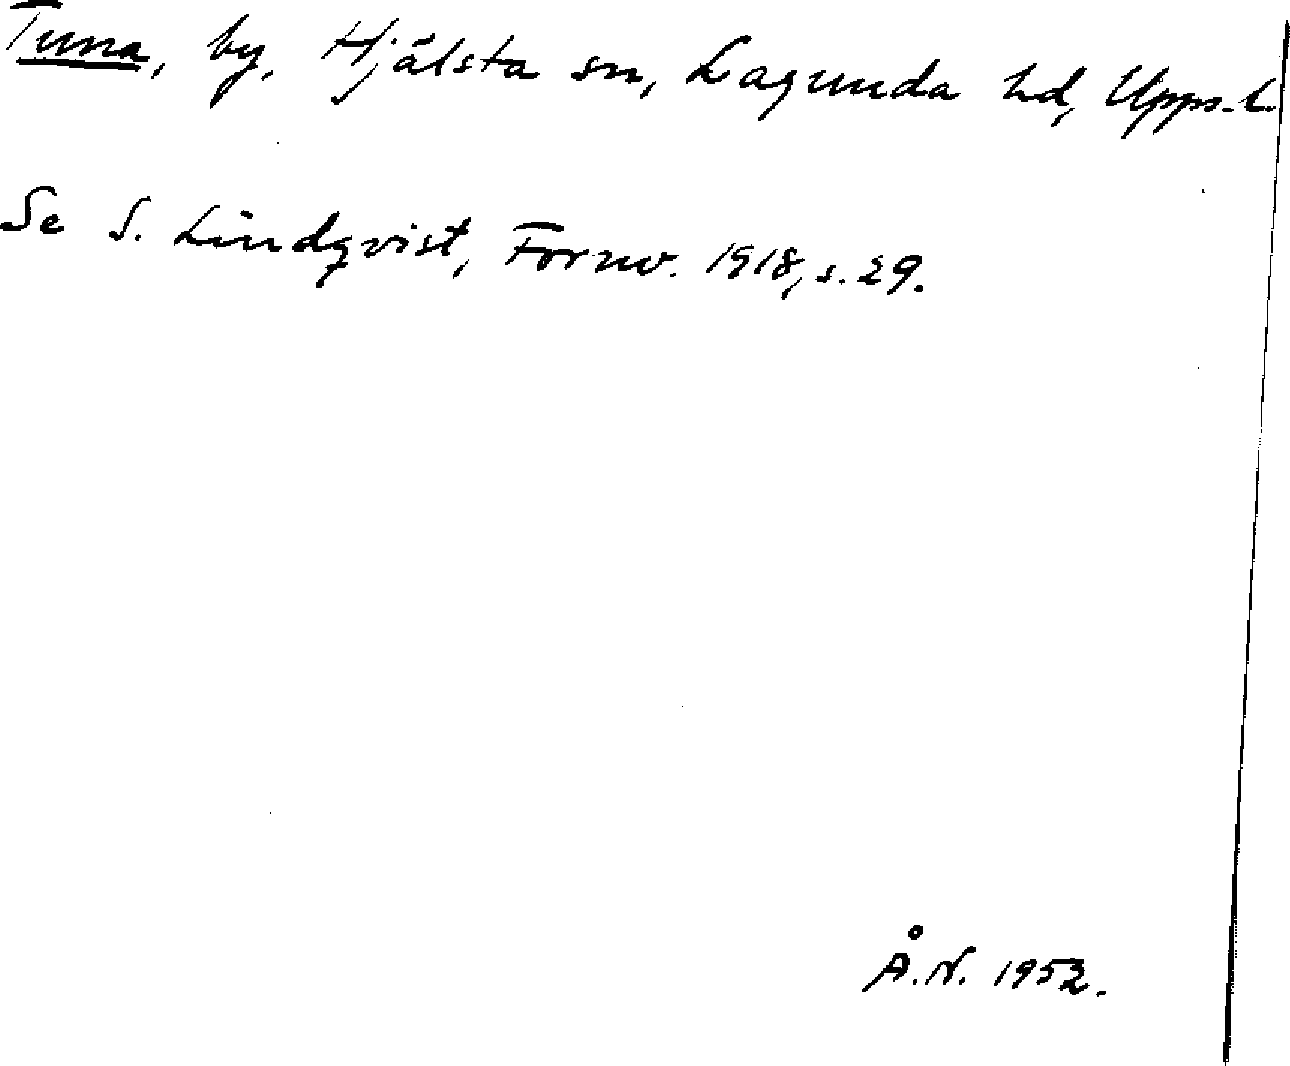 Tuna, by, Hjälsta sn, Lagunda hd, Upps. l.
Se S. Lindqvist, Fornv. 1918, s. 29.
Å. N. 1952.